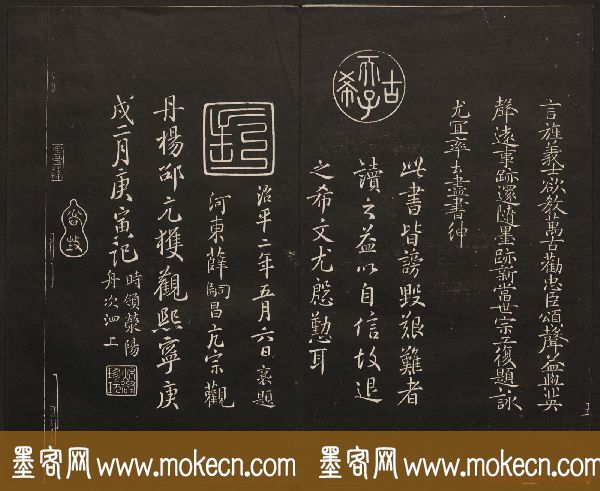 言旌義士欲敎萬古勸忠臣頌聲益與英
聲遠事跡還随墨跡新當世宗工復題詠
尤宜率土盡書紳
古希天子
此書皆謗毀艱難者
讀之益以自信故退
之希文尤慇懃耳
治平二年五月六日襄題
河東薛嗣昌亢宗觀
丹楊邵亢獲觀熙寧庚
戌二月庚寅記
時領滎陽
舟次泗上
墨客网 www.mokecn.com
墨客网 www.mokecn.com